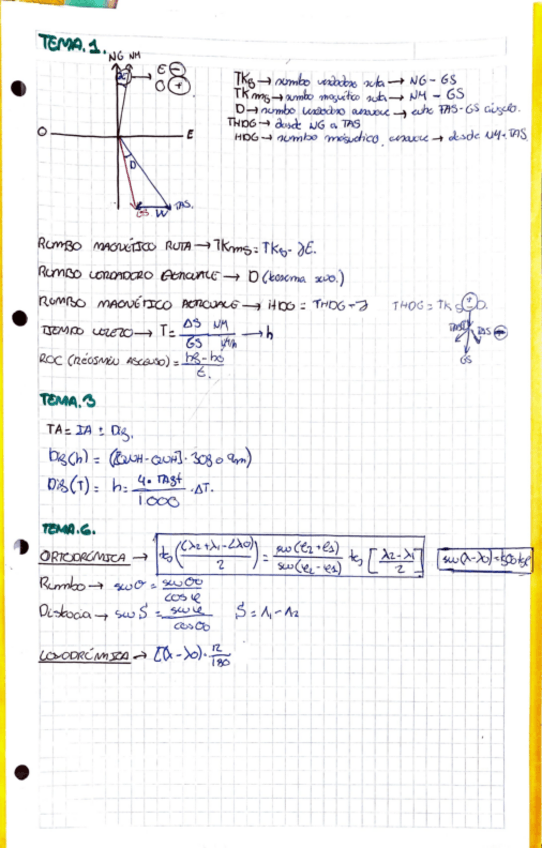 TEMA.1.
NG NM
E ⊖
O ⊕
O
E
D
GS W TAS.
TKg → rumbo verdadero ruta → NG - GS
TKmg → rumbo magnético ruta → NM - GS
D → rumbo verdadero aeronave → entre TAS-GS ángulo.
THDG → desde NG a TAS
HDG → rumbo magnético aeronave → desde NM-TAS
RUMBO MAGNÉTICO RUTA → TKmg = TKg - ∂E.
RUMBO VERDADERO AERONAVE → D (teorema seno.)
RUMBO MAGNÉTICO AERONAVE → HDG = THDG - ∂ THDG = TKg ⊕ D.
TAS TAS ⊖
GS
TIEMPO VUELO → T = ΔS NM / GS → h
ROC (RÉGIMEN ASCENSO) = / t.
TEMA.3
TA = IA ± Dif.
Dif(h) = ([QNH - QNH]. 30 ft o 9m)
Dif(T) = h = 4. / 1000 . ΔT.
TEMA.6.
ORTODRÓMICA → tg ((λ2+λ1-2λ0) / 2) = sen(φ2+φ1) / sen(φ2-φ1) tg [λ2-λ1 / 2]
Rumbo → senθ = senθ0 / cosφ
Distancia → sen S = senφ / cosθ0 S = Λ1 - Λ2
LOXODRÓMICA → [(λ - λ0). π / 180